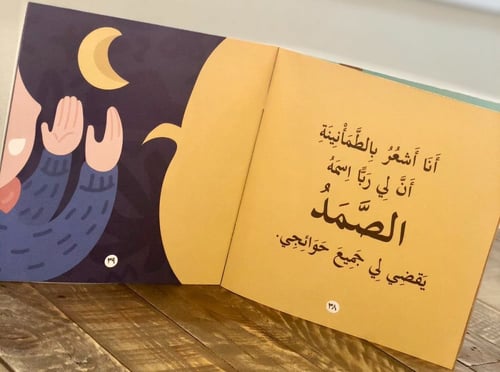 أَنَا أَشعُرُ بِالطَّمَأْنِينَةِ
أَنَّ لِي رَبًّا اِسمَهُ
الصَّمَدُ
يَقضِي لِي جَمِيعَ حَوَائِجِي.
٣٨
٣٩